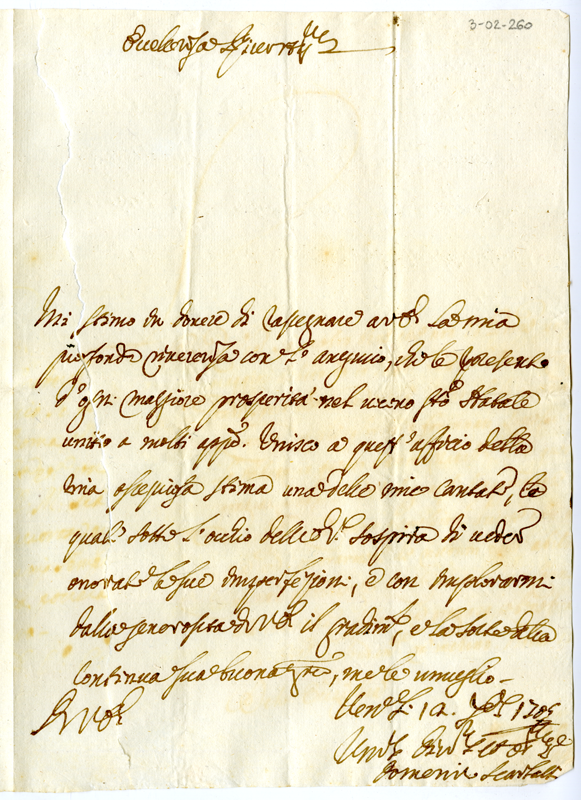 3-02-260
Eccellenza
Mi stimo in dovere di rassegnare a V.E. la mia
profonda riverenza con l' augurio, che le presento
d' ogni maggiore prosperità nel vicino Sto Natale
unito a molti appo. Unisco a quest' officio della
mia ossequiosa stima una delle mie Cantate, la
quale sotto l'occhio dell' E.V. sospira di veder
onorate le sue imperfezioni, e con implorarmi
dalla generosità di V.E. il gradimto, e la sorte della
continua sua buona gratia, me le umiglio
Di V.E.
Venezia 12 1705
Domenico Scarlatti